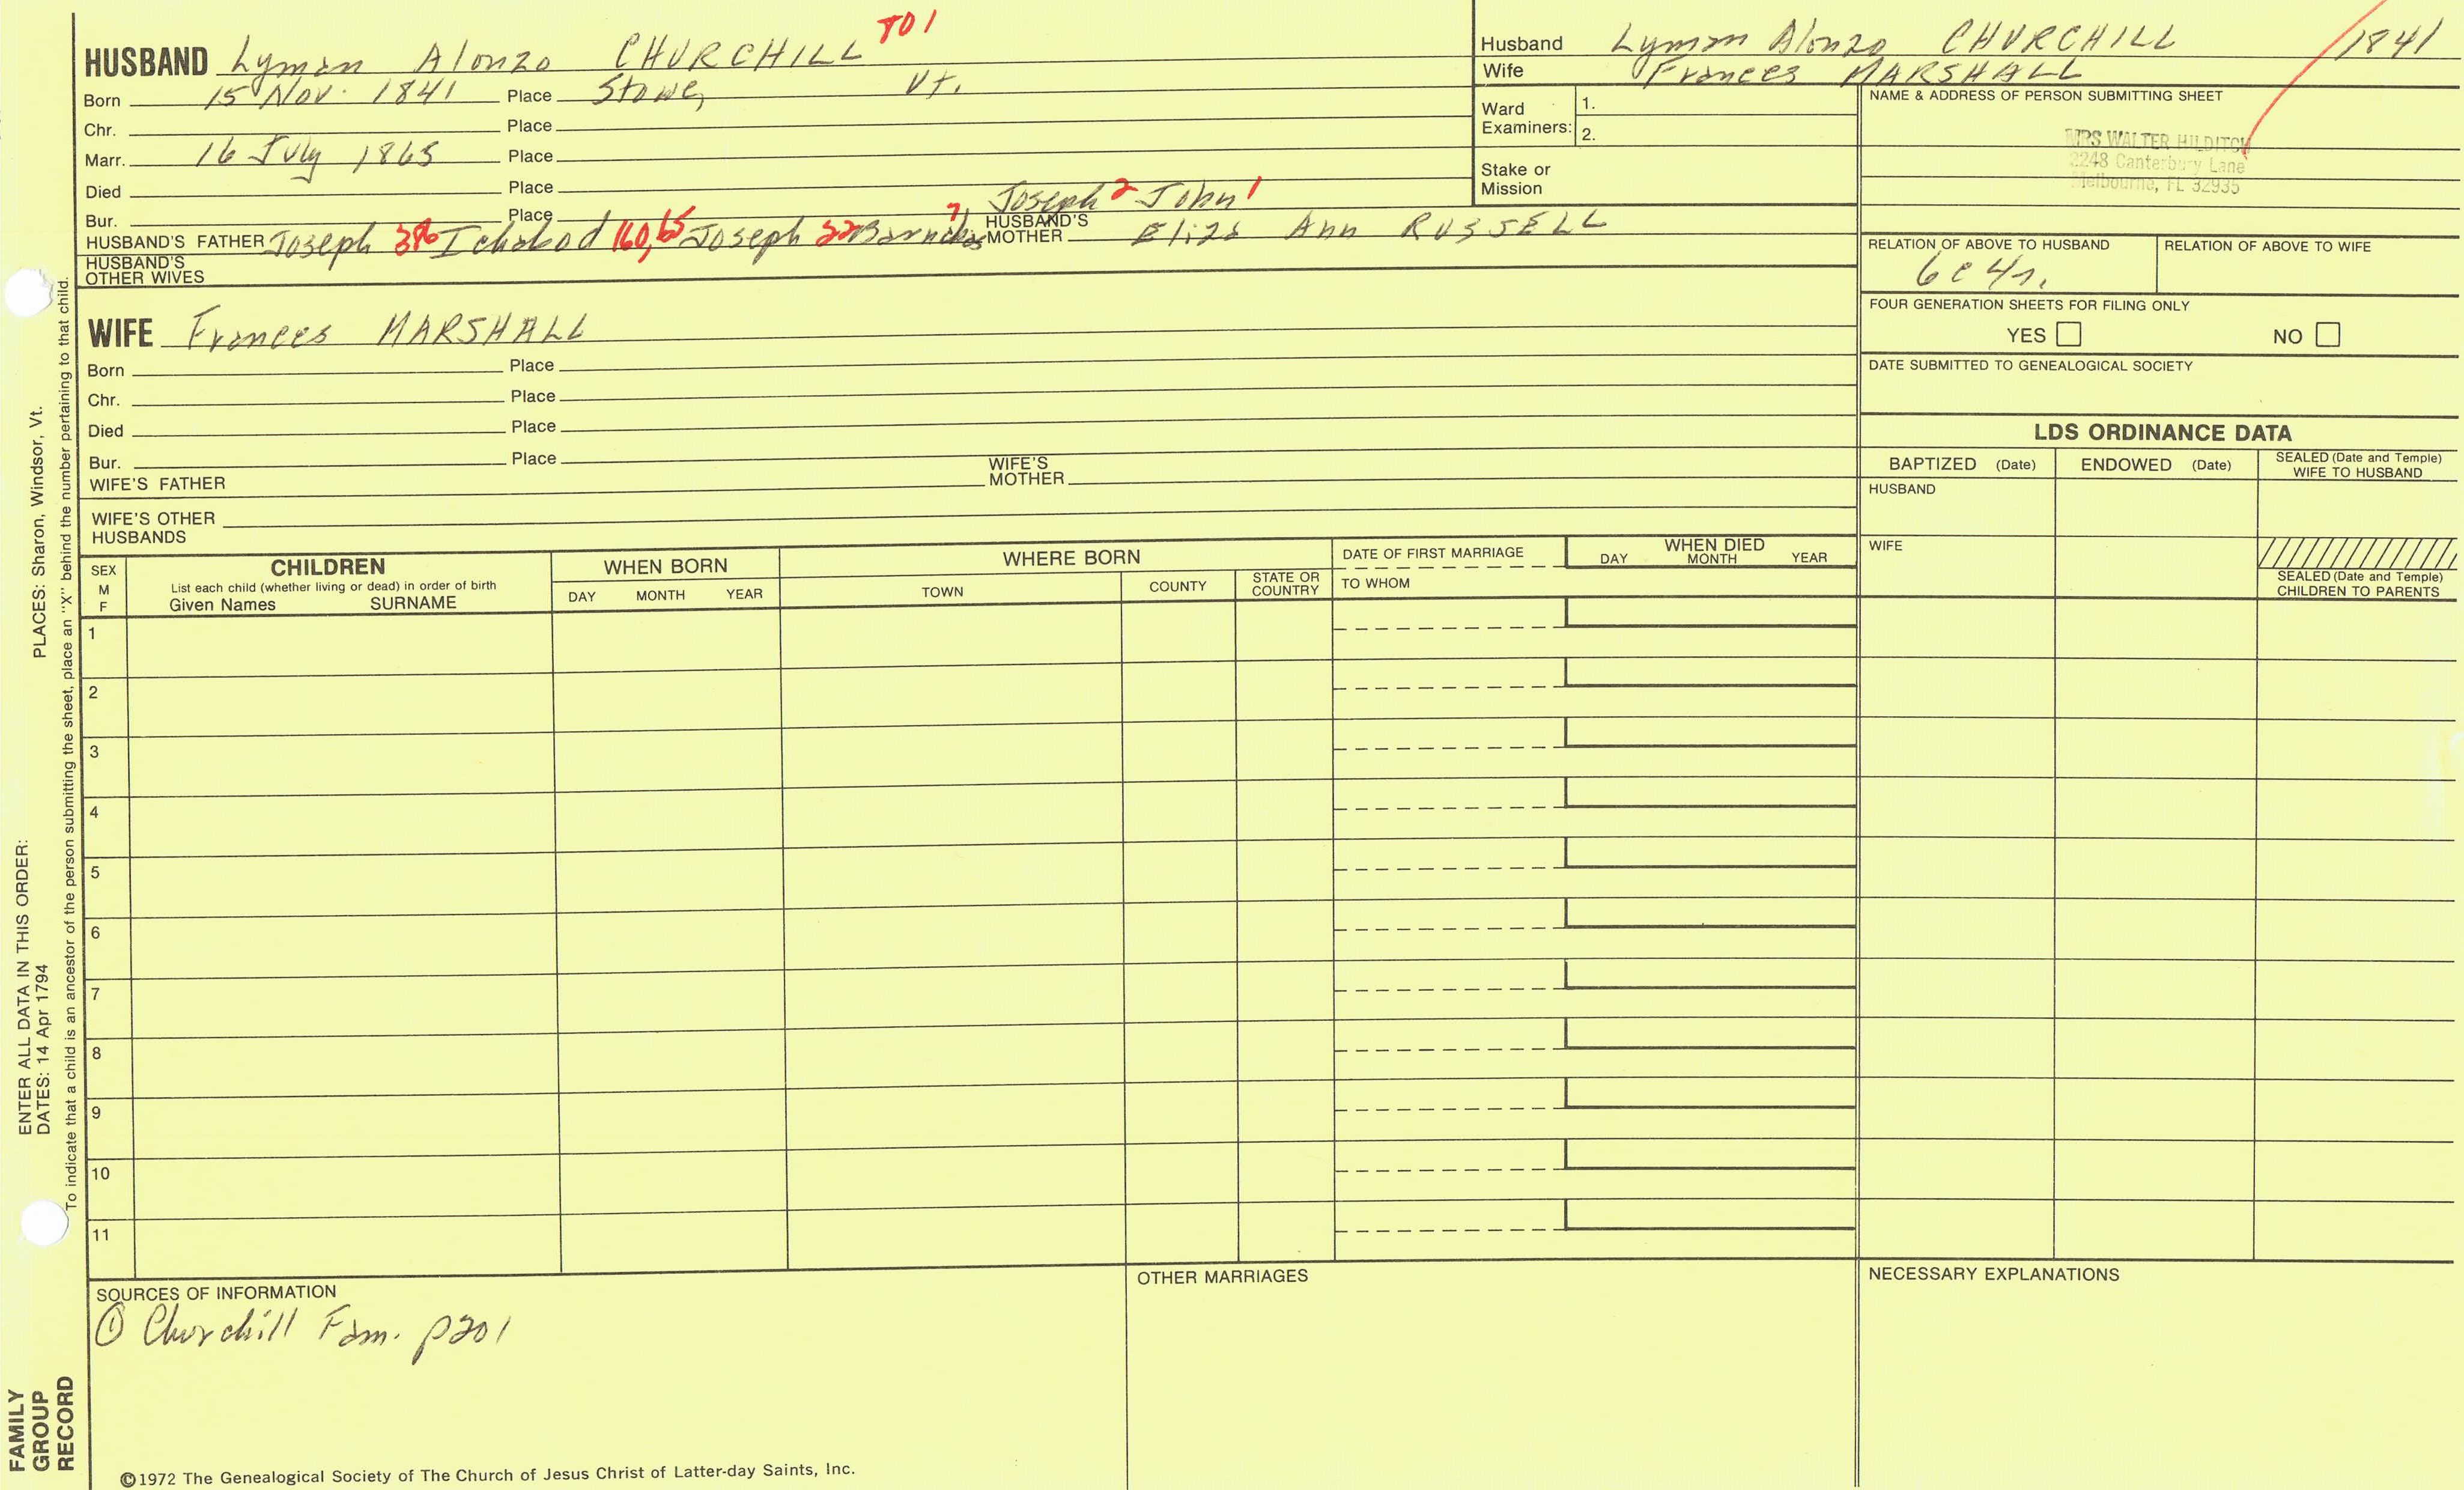 HUSBAND Lyman Alonzo CHURCHILL 801
Born 15 Nov. 1841 Place Stowe, Vt.
Chr. Place
Marr. 16 July 1865 Place
Died Place
Bur. Place Joseph 2 John 1
HUSBAND'S FATHER Joseph 386 Ichabod 160,65 Joseph 22 Barnabas 7 HUSBAND'S MOTHER Eliza Ann RUSSELL
HUSBAND'S OTHER WIVES
WIFE Frances MARSHALL
Born Place
Chr. Place
Died Place
Bur. Place
WIFE'S FATHER WIFE'S MOTHER
WIFE'S OTHER HUSBANDS
Husband Lyman Alonzo CHURCHILL 1841
Wife Frances MARSHALL
Ward Examiners: 1.
2.
Stake or Mission
NAME & ADDRESS OF PERSON SUBMITTING SHEET
MRS WALTER HILDITCH
2248 Canterbury Lane
Melbourne, FL 32935
RELATION OF ABOVE TO HUSBAND RELATION OF ABOVE TO WIFE
6c4r.
FOUR GENERATION SHEETS FOR FILING ONLY
YES NO
DATE SUBMITTED TO GENEALOGICAL SOCIETY
LDS ORDINANCE DATA
BAPTIZED (Date) ENDOWED (Date) SEALED (Date and Temple) WIFE TO HUSBAND
HUSBAND
WIFE
SEALED (Date and Temple) CHILDREN TO PARENTS
SEX M F
CHILDREN
List each child (whether living or dead) in order of birth
Given Names SURNAME
WHEN BORN
DAY MONTH YEAR
WHERE BORN
TOWN COUNTY STATE OR COUNTRY
DATE OF FIRST MARRIAGE
TO WHOM
WHEN DIED
DAY MONTH YEAR
1
2
3
4
5
6
7
8
9
10
11
SOURCES OF INFORMATION
① Churchill Fam. p201
OTHER MARRIAGES
NECESSARY EXPLANATIONS
©1972 The Genealogical Society of The Church of Jesus Christ of Latter-day Saints, Inc.
FAMILY GROUP RECORD
ENTER ALL DATA IN THIS ORDER:
DATES: 14 Apr 1794 PLACES: Sharon, Windsor, Vt.
To indicate that a child is an ancestor of the person submitting the sheet, place an "X" behind the number pertaining to that child.